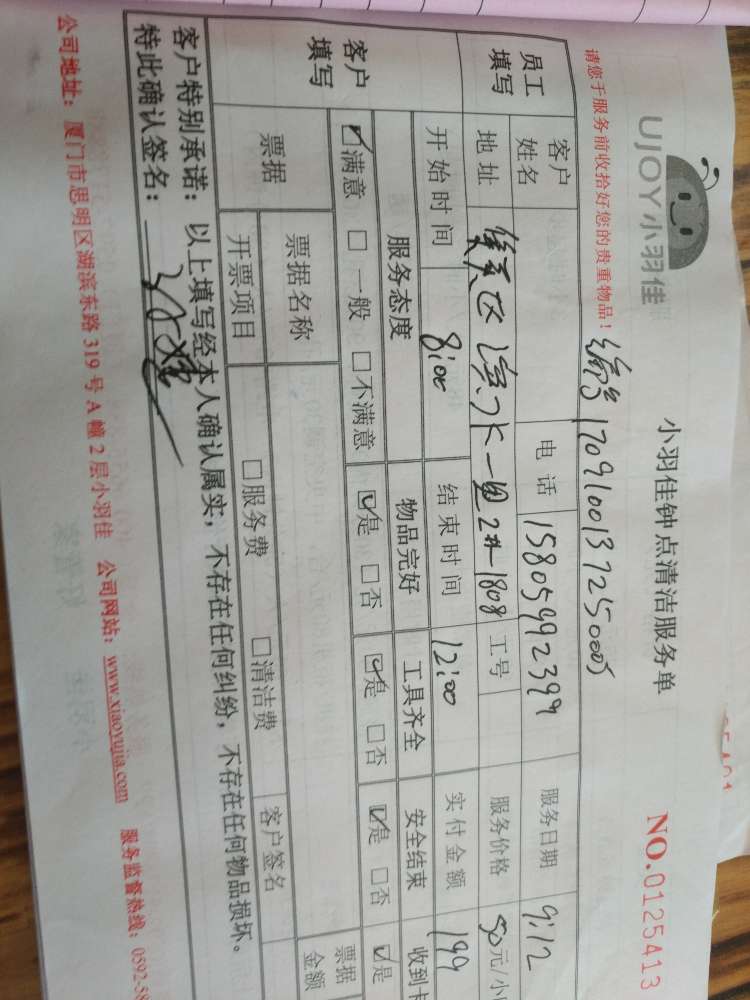 UJOY小羽佳
小羽佳钟点清洁服务单
NO.0125413
请您于服务前收拾好您的贵重物品！
编号1709100137250005
员工填写 客户姓名 电话 15805992399 服务日期 9.12
地址 集美区 一里2#-1808 工号 服务价格 50元/小
开始时间 8:00 结束时间 12:00 实付金额 199
客户填写 服务态度 物品完好 工具齐全 安全结束 收到卡
☑满意 □一般 □不满意 ☑是 □否 ☑是 □否 ☑是 □否 ☑是
票据 票据名称 票据金额
开票项目 □服务费 □清洁费 客户签名
客户特别承诺：以上填写经本人确认属实，不存在任何纠纷，不存在任何物品损坏。
特此确认签名：
公司地址：厦门市思明区湖滨东路319号A幢2层小羽佳 公司网站：www.xiaoyujia.com 服务监督热线：0592-58